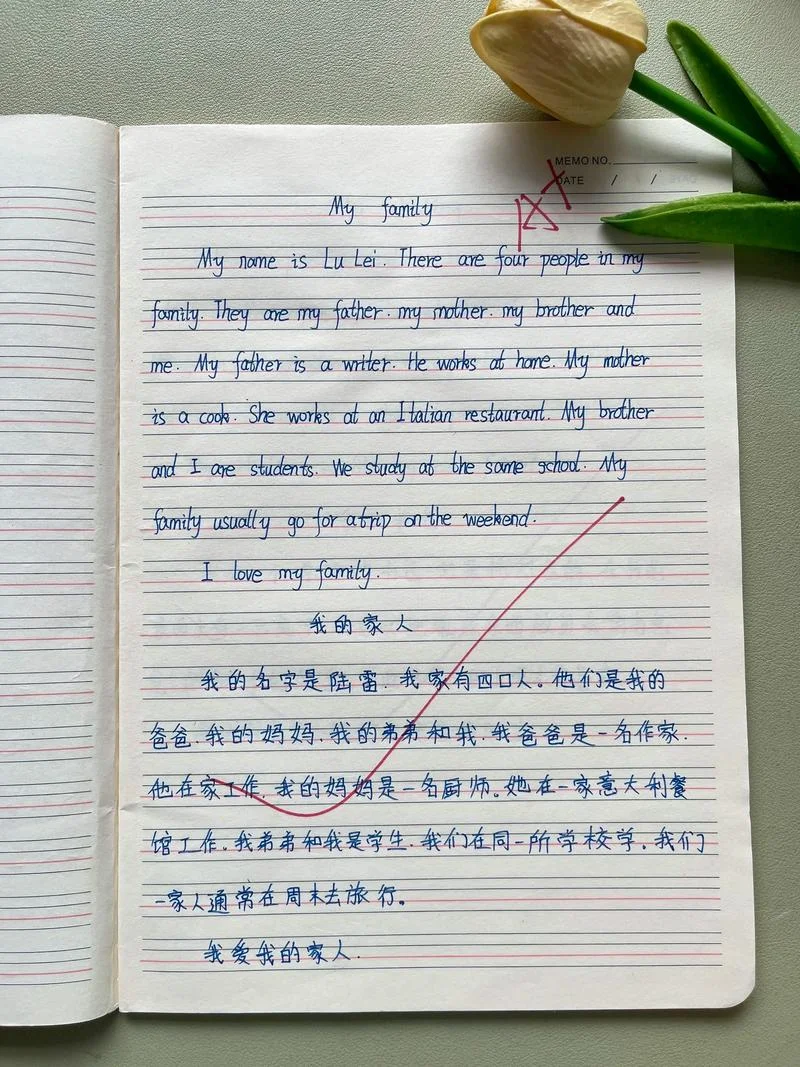 MEMO NO.
DATE / /
My family
My name is Lu Lei. There are four people in my
family. They are my father. my mother. my brother and
me. My father is a writer. He works at home. My mother
is a cook. She works at an Italian restaurant. My brother
and I are students. We study at the same school. My
family usually go for a trip on the weekend.
I love my family.
我的家人
我的名字是陆雷.我家有四口人。他们是我的
爸爸.我的妈妈.我的弟弟和我.我爸爸是一名作家.
他在家工作.我的妈妈是一名厨师。她在一家意大利餐
馆工作.我弟弟和我是学生.我们在同一所学校学.我们
一家人通常在周末去旅行。
我爱我的家人.